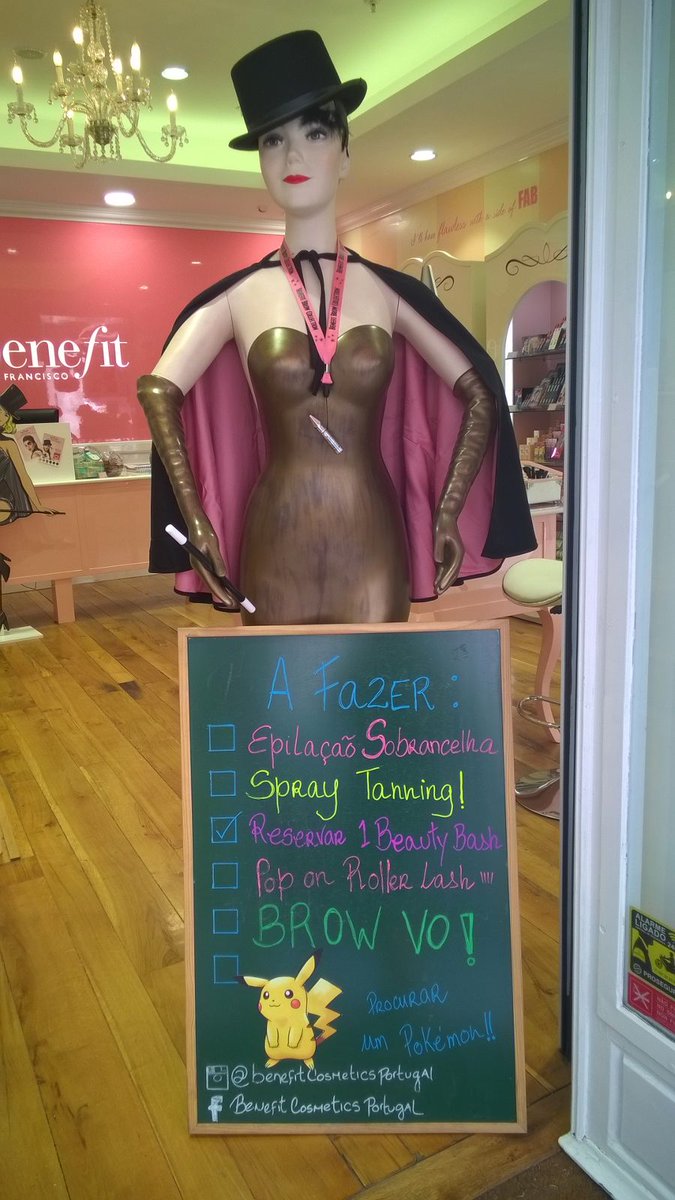 I'll have flawless with a side of FAB
benefit
FRANCISCO
A FAZER :
EPILAÇAÕ SOBRANCELHA
SPRAY TANNING!
RESERVAR 1 BEAUTY BASH
POP ON ROLLER LASH !!!!
BROW VO!
PROCURAR
UM POKÉMON!!
@benefitCosmeticsPortugal
f BENEFIT COSMETICS PORTUGAL
ALARME
LIGADO 24
PROSEGUR